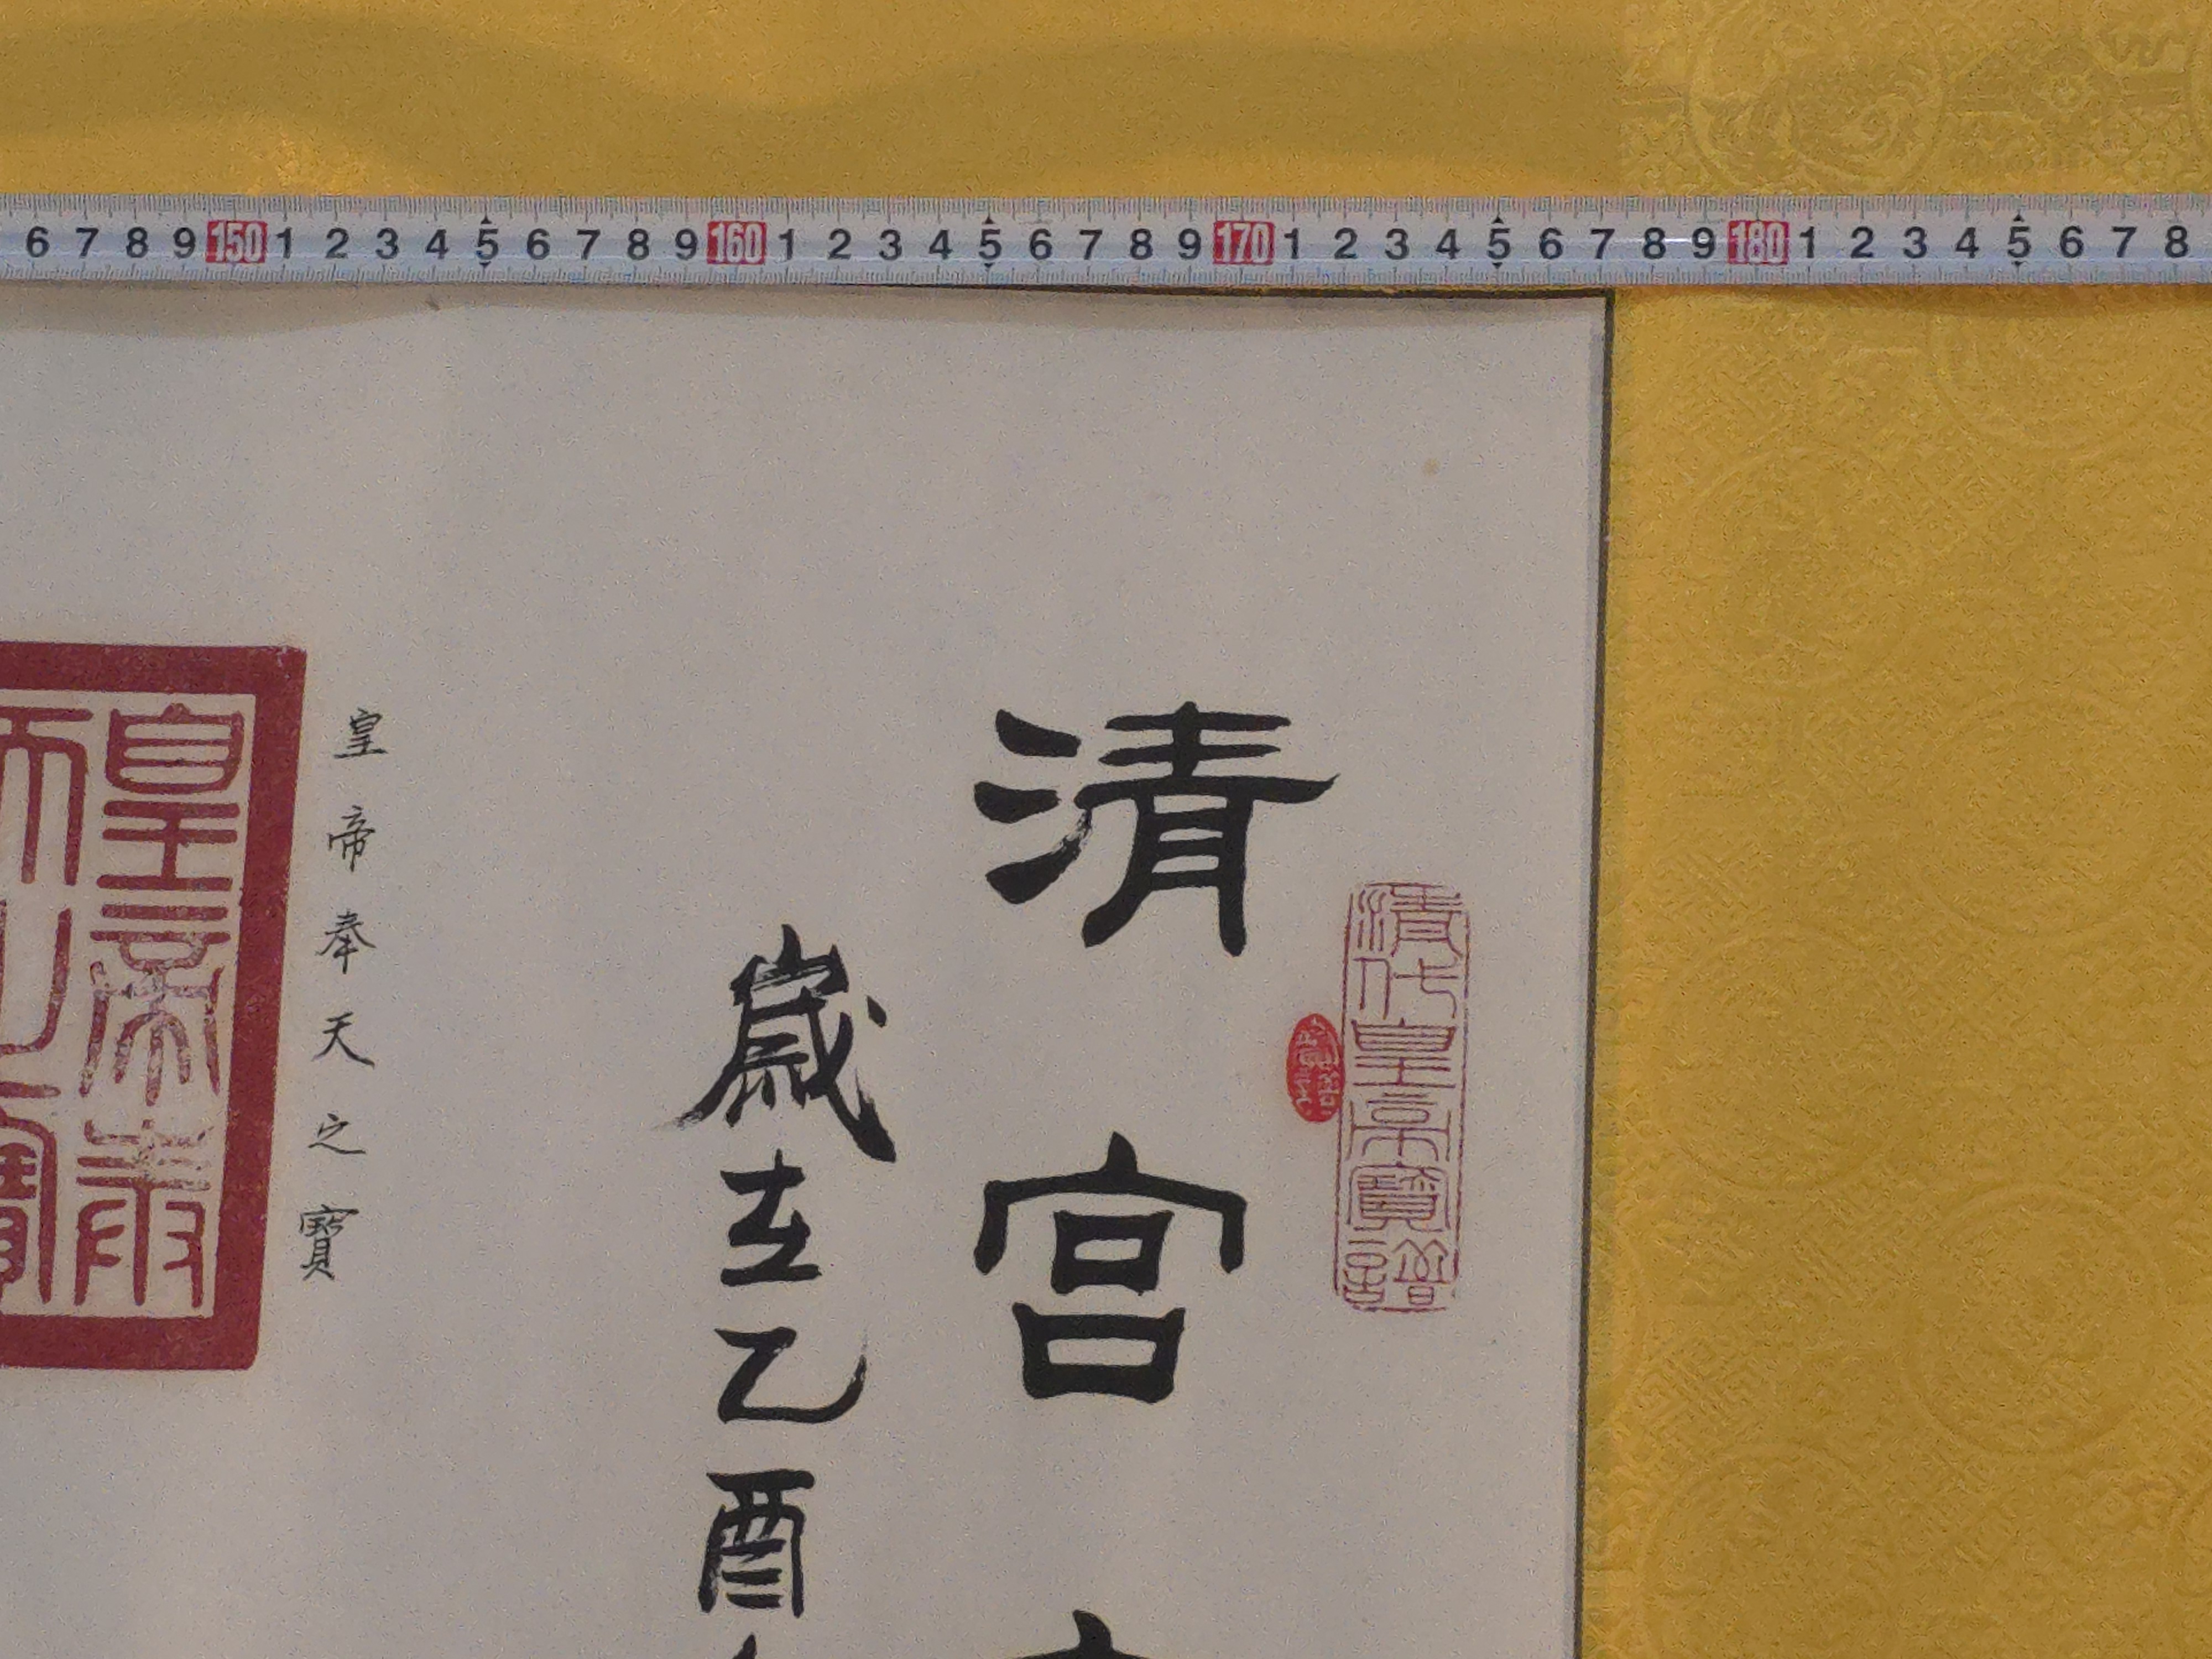 6 7 8 9 150 1 2 3 4 5 6 7 8 9 160 1 2 3 4 5 6 7 8 9 170 1 2 3 4 5 6 7 8 9 180 1 2 3 4 5 6 7 8
清代皇帝寶譜
清宫
歲在乙酉
皇帝奉天之寶
皇帝奉
天之寶